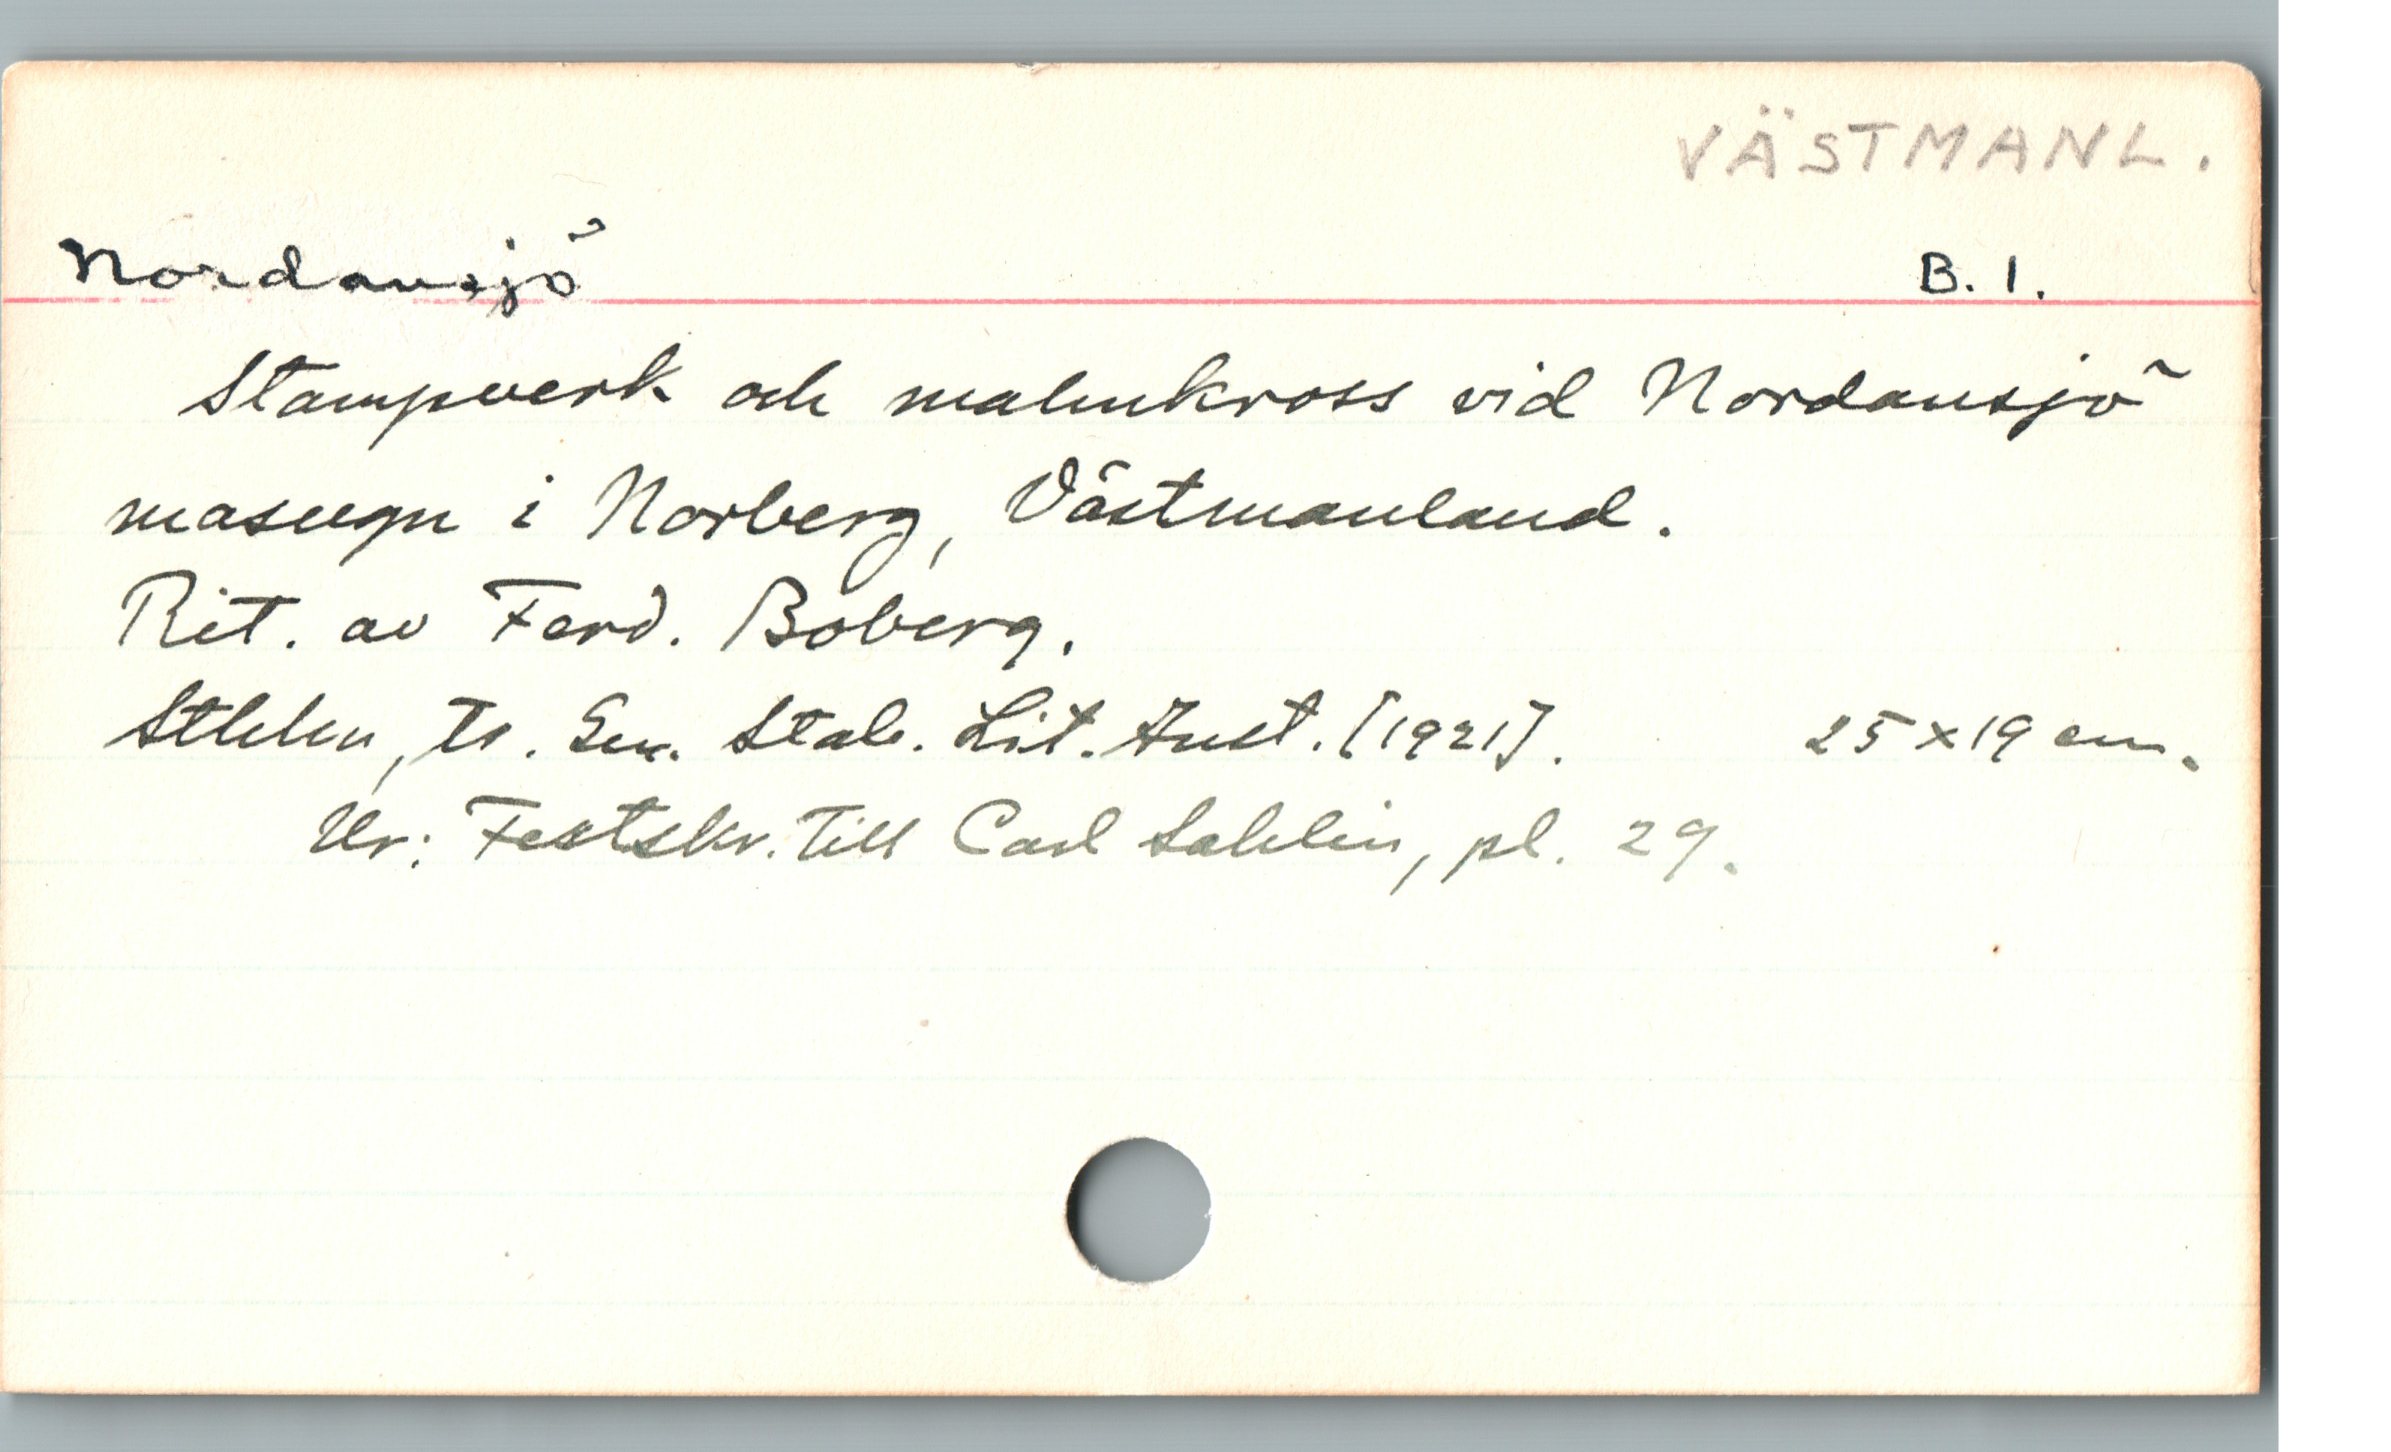 VÄSTMANL.
Nordansjö B. 1.
Stampverk och malmkross vid Nordansjö
masugn i Norberg, Västmanland.
Rit. av Ferd. Boberg.
Sthlm, tr. Gen. Stab. Lit. Anst. [1921]. 25 x 19 cm.
Ur: Festskr. till Carl Sahlin, pl. 29.